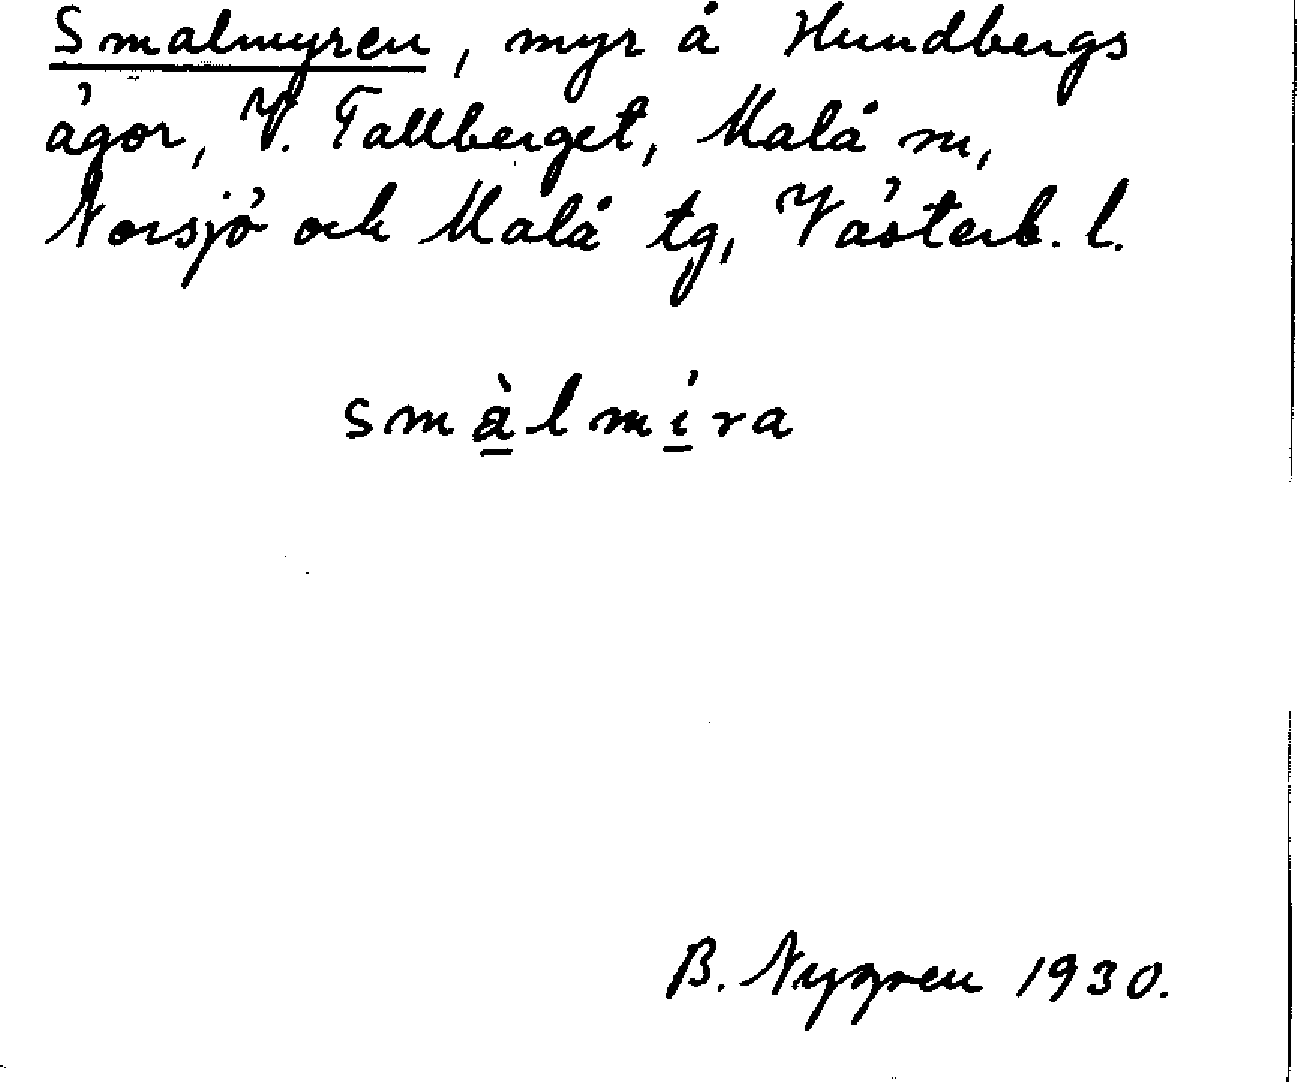 Smalmyren, myr å Hundbergs
ägor, V. Tallberget, Malå sn,
Norsjö och Malå tg, Västerb. l.
smàlmíra
B. Nygren 1930.